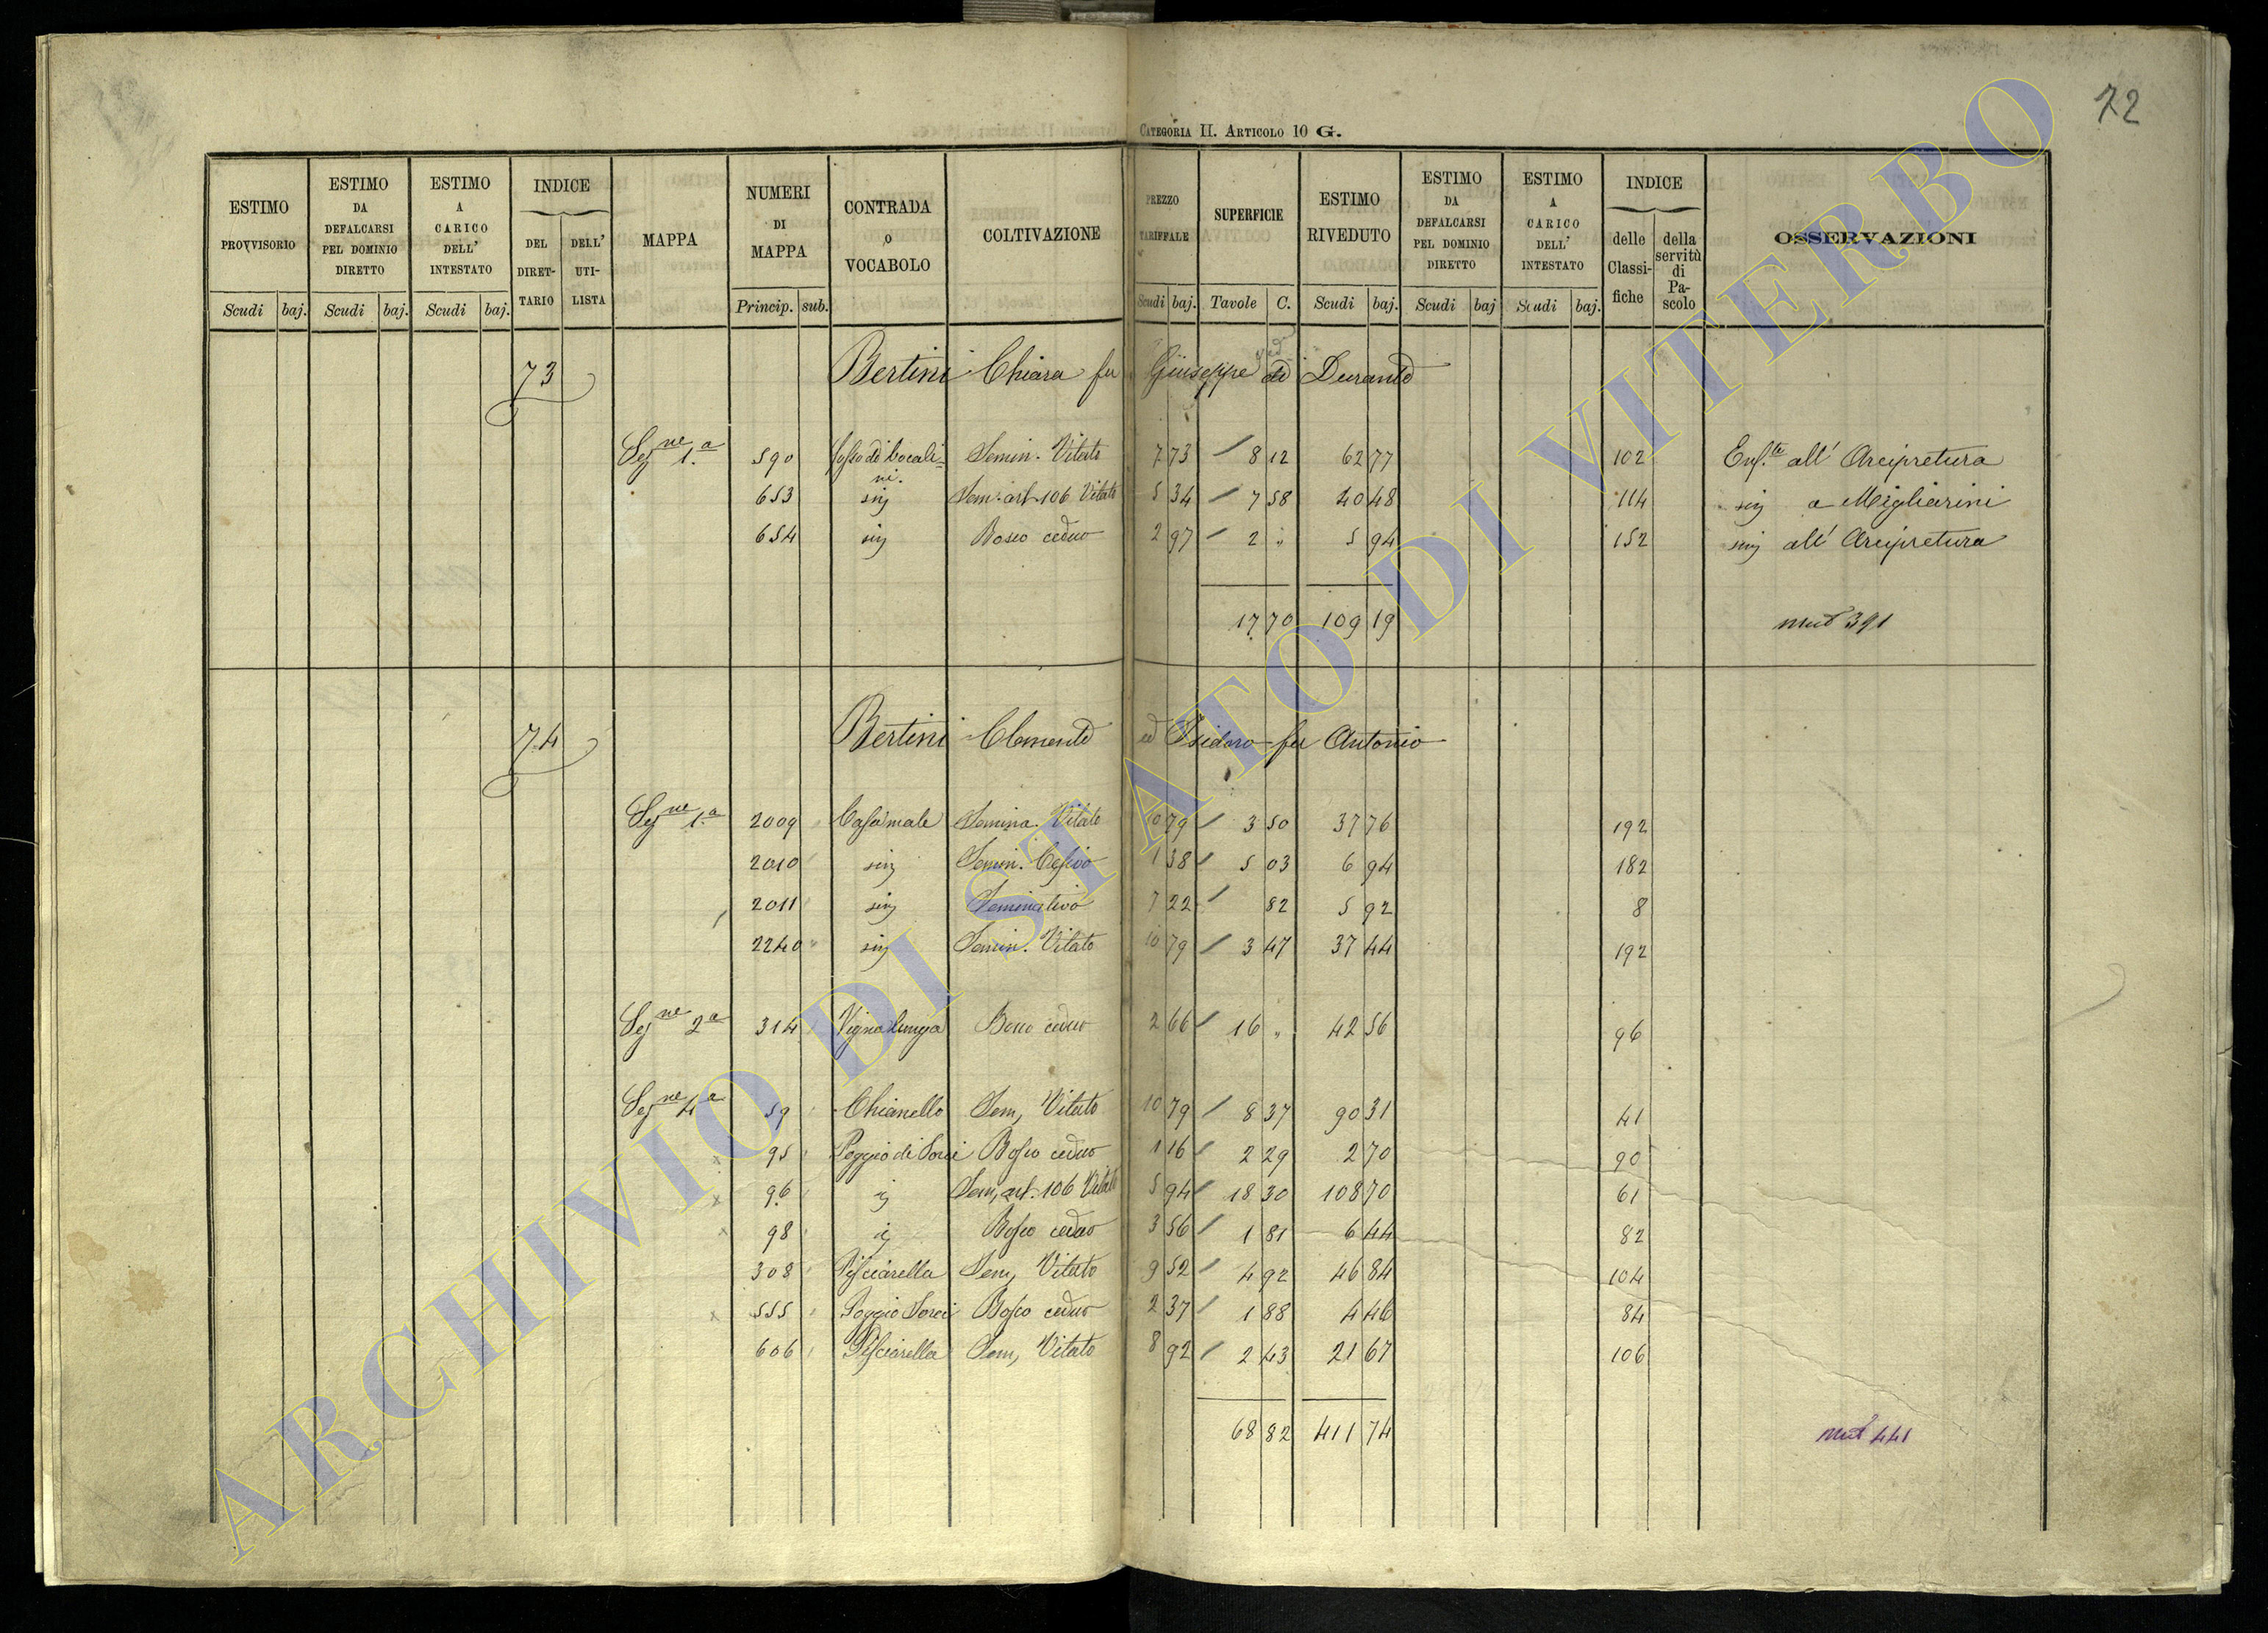 72
CATEGORIA II. ARTICOLO 10 G.
ESTIMO PROVVISORIO | ESTIMO DA DEFALCARSI PEL DOMINIO DIRETTO | ESTIMO A CARICO DELL' INTESTATO | INDICE DEL DIRETTARIO | DELL' UTILISTA | MAPPA | NUMERI DI MAPPA | CONTRADA O VOCABOLO | COLTIVAZIONE | PREZZO TARIFFALE | SUPERFICIE | ESTIMO RIVEDUTO | ESTIMO DA DEFALCARSI PEL DOMINIO DIRETTO | ESTIMO A CARICO DELL' INTESTATO | INDICE delle Classifiche | della servitù di Pascolo | OSSERVAZIONI
Scudi baj. | Scudi baj. | Scudi baj. | Princip. sub. | Scudi baj. | Tavole C. | Scudi baj. | Scudi baj | Scudi baj.
73 Bertini Chiara fu Giuseppe ved di Durante
Sez.ne 1.a 590 Fosso di bocalini. Semin. Vitato 7 73 8 12 62 77 102 Enf.ta all' Arcipretura
653 sig Sem. art. 106 Vitato 5 34 7 58 40 48 114 sig a Migliarini
654 sig Bosco ceduo 2 97 2 " 5 94 152 sig all' Arcipretura
17 70 109 19 mut 391
74 Bertini Clemente ed Isidoro fu Antonio
Sez.ne 1.a 2009 Casamale Semina. Vitato 10 79 3 50 37 76 192
2010 sig Semin. Cesivo 1 38 5 03 6 94 182
2011 sig Seminativo 7 22 82 5 92 8
2240 sig Semin. Vitato 10 79 3 47 37 44 192
Sez.ne 2.a 314 Vigna lunga Bosco ceduo 2 66 16 " 42 56 96
Sez.ne 4.a 59 Chianello Sem, Vitato 10 79 8 37 90 31 41
95 Poggio di Sorci Bosco ceduo 1 16 2 29 2 70 90
96 ig Sem, art. 106 Vitato 5 94 18 30 108 70 61
98 ig Bosco ceduo 3 56 1 81 6 44 82
308 Pisciarella Sem, Vitato 9 52 4 92 46 84 104
555 Poggio Sorci Bosco ceduo 2 37 1 88 4 46 84
606 Pisciarella Sem, Vitato 8 92 2 43 21 67 106
68 82 411 74 mut 441
ARCHIVIO DI STATO DI VITERBO